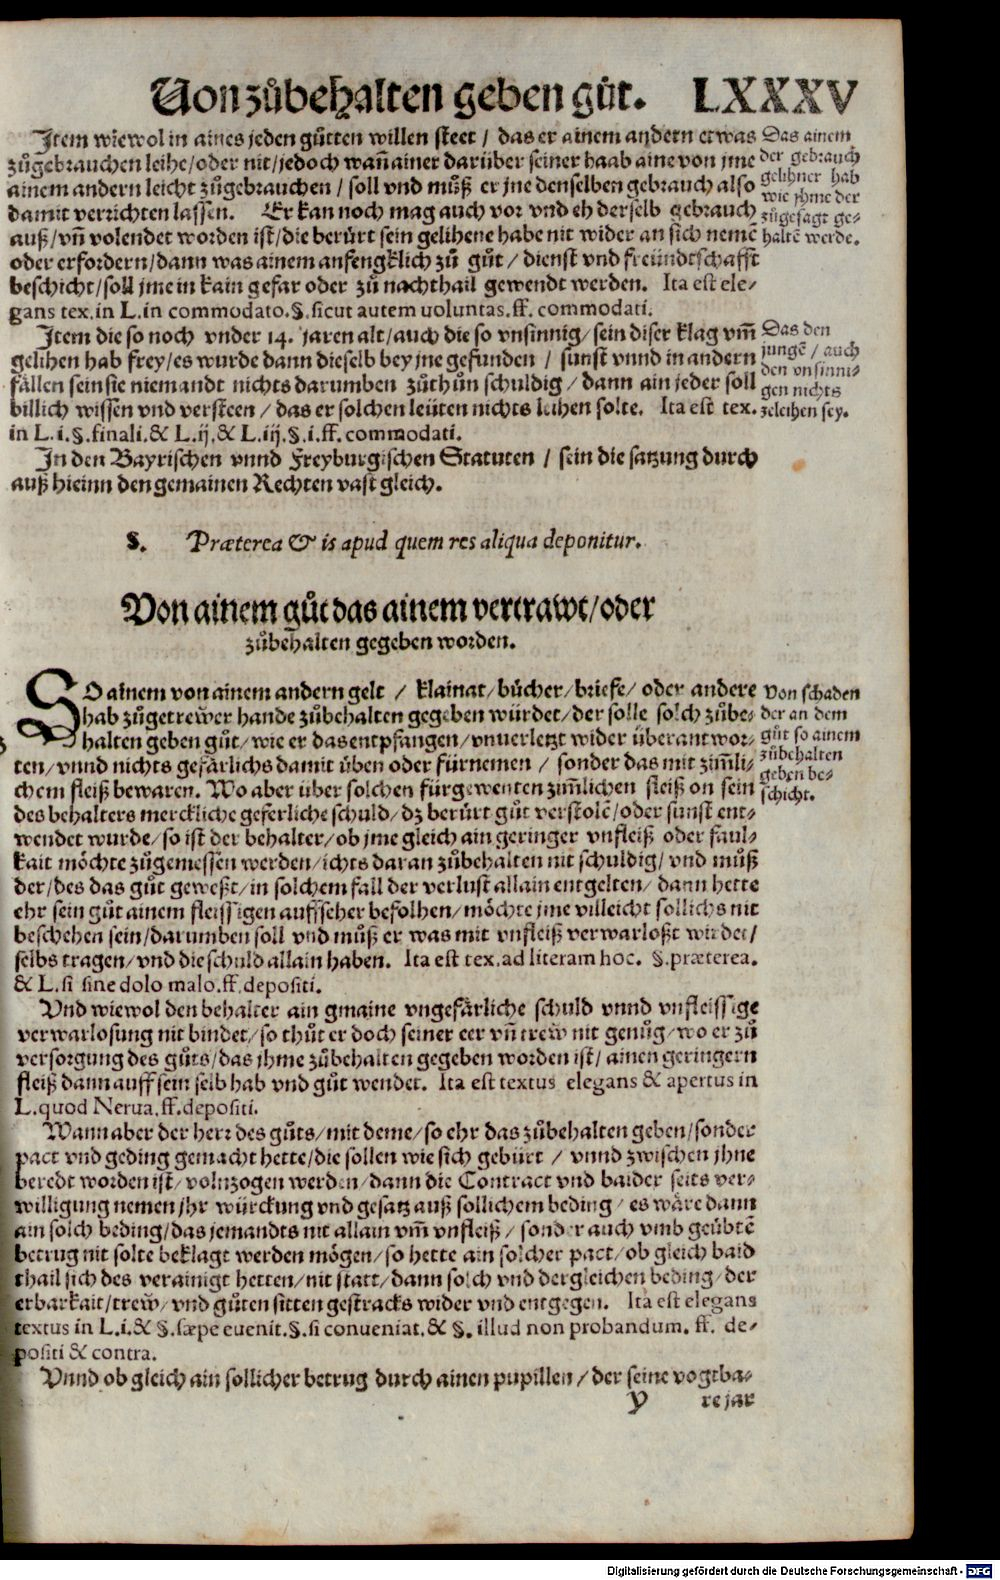 Von zůbehalten geben gůt. LXXXV
Item wiewol in aines jeden gůtten willen steet / das er ainem andern etwas
zůgebrauchen leihe/oder nit/jedoch wañ ainer darüber seiner haab aine von jme
ainem andern leicht zůgebrauchen / soll vnd můß er jne denselben gebrauch also
damit verrichten lassen. Er kan noch mag auch vor vnd eh derselb gebrauch
auß/vñ volendet worden ist/die berürt sein gelihene habe nit wider an sich nemē
oder erfordern/dann was ainem anfengklich zů gůt / dienst vnd freündtschafft
beschicht/soll jme in kain gefar oder zů nachthail gewendt werden. Ita est ele-
gans tex. in L. in commodato. §. sicut autem uoluntas. ff. commodati.
Das ainem
der gebrauch
gelihner hab
wie jhme der
zůgesagt ge-
haltē werde.
Item die so noch vnder 14. jaren alt/auch die so vnsinnig/sein diser klag vm̃
gelihen hab frey/es wurde dann dieselb bey jne gefunden / sunst vnnd in andern
fällen sein sie niemandt nichts darumben zůthůn schuldig/dann ain jeder soll
billich wissen vnd versteen/das er solchen leüten nichts leihen solte. Ita est tex.
in L. i. §. finali. & L. ij. & L. iij. §. i. ff. commodati.
Das den
jungē / auch
den vnsinni-
gen nichts
zeleihen sey.
In den Bayrischen vnnd Freyburgischen Statuten / sein die satzung durch
auß hieinn den gemainen Rechten vast gleich.
§. Præterea & is apud quem res aliqua deponitur.
Von ainem gůt das ainem vertrawt/oder
zůbehalten gegeben worden.
SO ainem von ainem andern gelt / klainat/bücher/briefe/oder andere
hab zůgetrewer hande zůbehalten gegeben würdet/der solle solch zůbe-
halten geben gůt/wie er das entpfangen/vnuerletzt wider überantwor-
ten/vnnd nichts gefärlichs damit üben oder fürnemen / sonder das mit zim̃li-
chem fleiß bewaren. Wo aber über solchen fürgewenten zim̃lichen fleiß on sein
des behalters merckliche geferliche schuld/dz berürt gůt verstolē/oder sunst ent-
wendet wurde/so ist der behalter/ob jme gleich ain geringer vnfleiß oder faul-
kait möchte zůgemessen werden/ichts daran zůbehalten nit schuldig/vnd můß
der/des das gůt geweßt/in solchem fall der verlust allain entgelten/dann hette
ehr sein gůt ainem fleissigen auffseher befolhen/möchte jme villeicht sollichs nit
beschehen sein/darumben soll vnd můß er was mit vnfleiß verwarloßt wirdet/
selbs tragen/vnd die schuld allain haben. Ita est tex. ad literam hoc. §. præterea.
& L. si sine dolo malo. ff. depositi.
Von schaden
der an dem
gůt so ainem
zůbehalten
geben be-
schicht.
Vnd wiewol den behalter ain gmaine vngefärliche schuld vnnd vnfleissige
verwarlosung nit bindet/so thůt er doch seiner eer vñ trew nit genůg/wo er zů
versorgung des gůts/das jhme zůbehalten gegeben worden ist/ainen geringern
fleiß dann auff sein selb hab vnd gůt wendet. Ita est textus elegans & apertus in
L. quod Nerua. ff. depositi.
Wann aber der herr des gůts/mit deme/so ehr das zůbehalten geben/sonder
pact vnd geding gemacht hette/die sollen wie sich gebürt / vnnd zwischen jhne
beredt worden ist/volnzogen werden/dann die Contract vnd baider seits ver-
willigung nemen jhr würckung vnd gesatz auß sollichem beding / es wäre dann
ain solch beding/das jemandts nit allain vm̃ vnfleiß / sonder auch vmb geübtē
betrug nit solte beklagt werden mögen/so hette ain solcher pact/ob gleich baid
thail sich des verainigt hetten/nit statt/dann solch vnd dergleichen beding/der
erbarkait/trew/vnd gůten sitten gestracks wider vnd entgegen. Ita est elegans
textus in L. i. & §. sæpe euenit. §. si conueniat. & §. illud non probandum. ff. de-
positi & contra.
Vnnd ob gleich ain sollicher betrug durch ainen pupillen/der seine vogtba-
y re jar
Digitalisierung gefördert durch die Deutsche Forschungsgemeinschaft - DFG